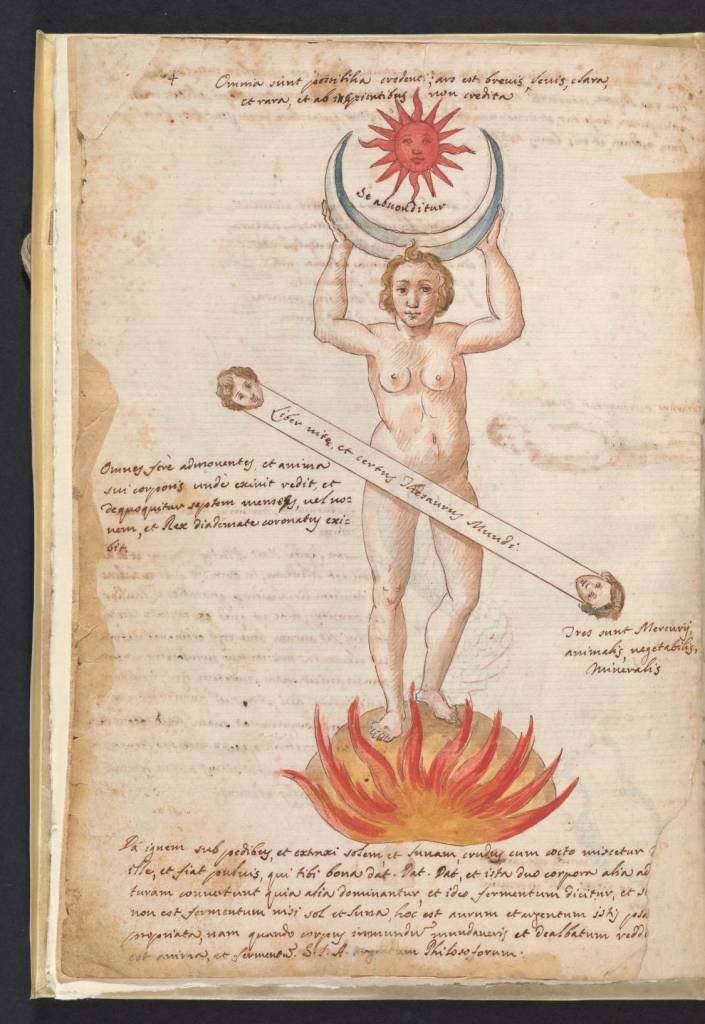 4
Omnia sunt possibilia credenti; ars est brevis, levis, clara,
et rara, et ab insipientibus non credita
Se absconditur
Liber vitę, et certus Thesaurus Mundi.
Omnes ferè admoventes, et anima
sui corporis undè exivit redit, et
dequoquitur septem menses, vel no-
vem, et Rex diademate coronatus exi-
bit.
Tres sunt Mercurij,
animalis, vegetabilis,
Mineralis
Da ignem sub pedibus, et extraxi solem et lunam, crudus cum cocto miscetur
ille, et fiat pulvis, qui tibi bona dat. Dat. Dat, et ista duo corpora alia ad
turam convertunt quia alia dominantur, et ideo fermentum dicitur, et
non est fermentum nisi sol et luna, hoc est aurum et argentum istis
propriata, nam quando corpus inmundũ mundaveris et dealbatum redd
est anima, et fermentũ. S. I. A. Philosoforum.